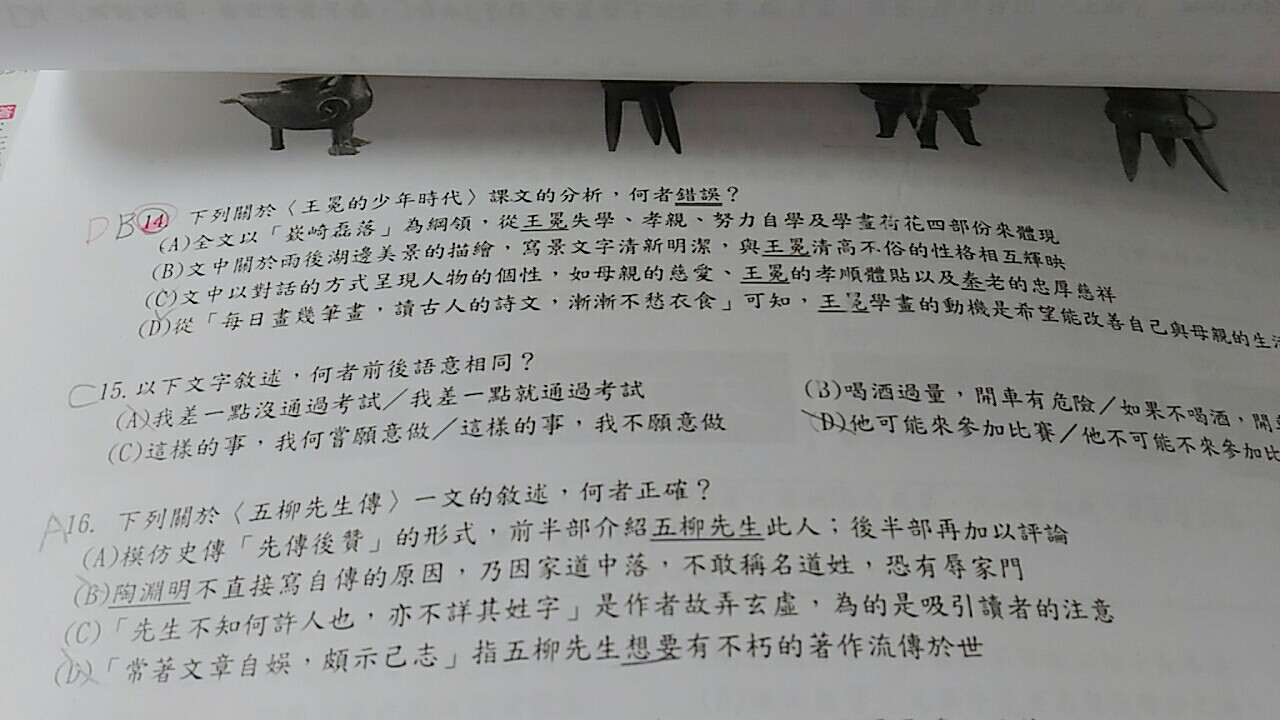 DB 14. 下列關於〈王冕的少年時代〉課文的分析，何者錯誤？
(A)全文以「嶔崎磊落」為綱領，從王冕失學、孝親、努力自學及學畫荷花四部份來體現
(B)文中關於雨後湖邊美景的描繪，寫景文字清新明潔，與王冕清高不俗的性格相互輝映
(C)文中以對話的方式呈現人物的個性，如母親的慈愛、王冕的孝順體貼以及秦老的忠厚慈祥
(D)從「每日畫幾筆畫，讀古人的詩文，漸漸不愁衣食」可知，王冕學畫的動機是希望能改善自己與母親的生活
C 15. 以下文字敘述，何者前後語意相同？
(A)我差一點沒通過考試／我差一點就通過考試 (B)喝酒過量，開車有危險／如果不喝酒，開
(C)這樣的事，我何嘗願意做／這樣的事，我不願意做 (D)他可能來參加比賽／他不可能不來參加比
A 16. 下列關於〈五柳先生傳〉一文的敘述，何者正確？
(A)模仿史傳「先傳後贊」的形式，前半部介紹五柳先生此人；後半部再加以評論
(B)陶淵明不直接寫自傳的原因，乃因家道中落，不敢稱名道姓，恐有辱家門
(C)「先生不知何許人也，亦不詳其姓字」是作者故弄玄虛，為的是吸引讀者的注意
(D)「常著文章自娛，頗示己志」指五柳先生想要有不朽的著作流傳於世